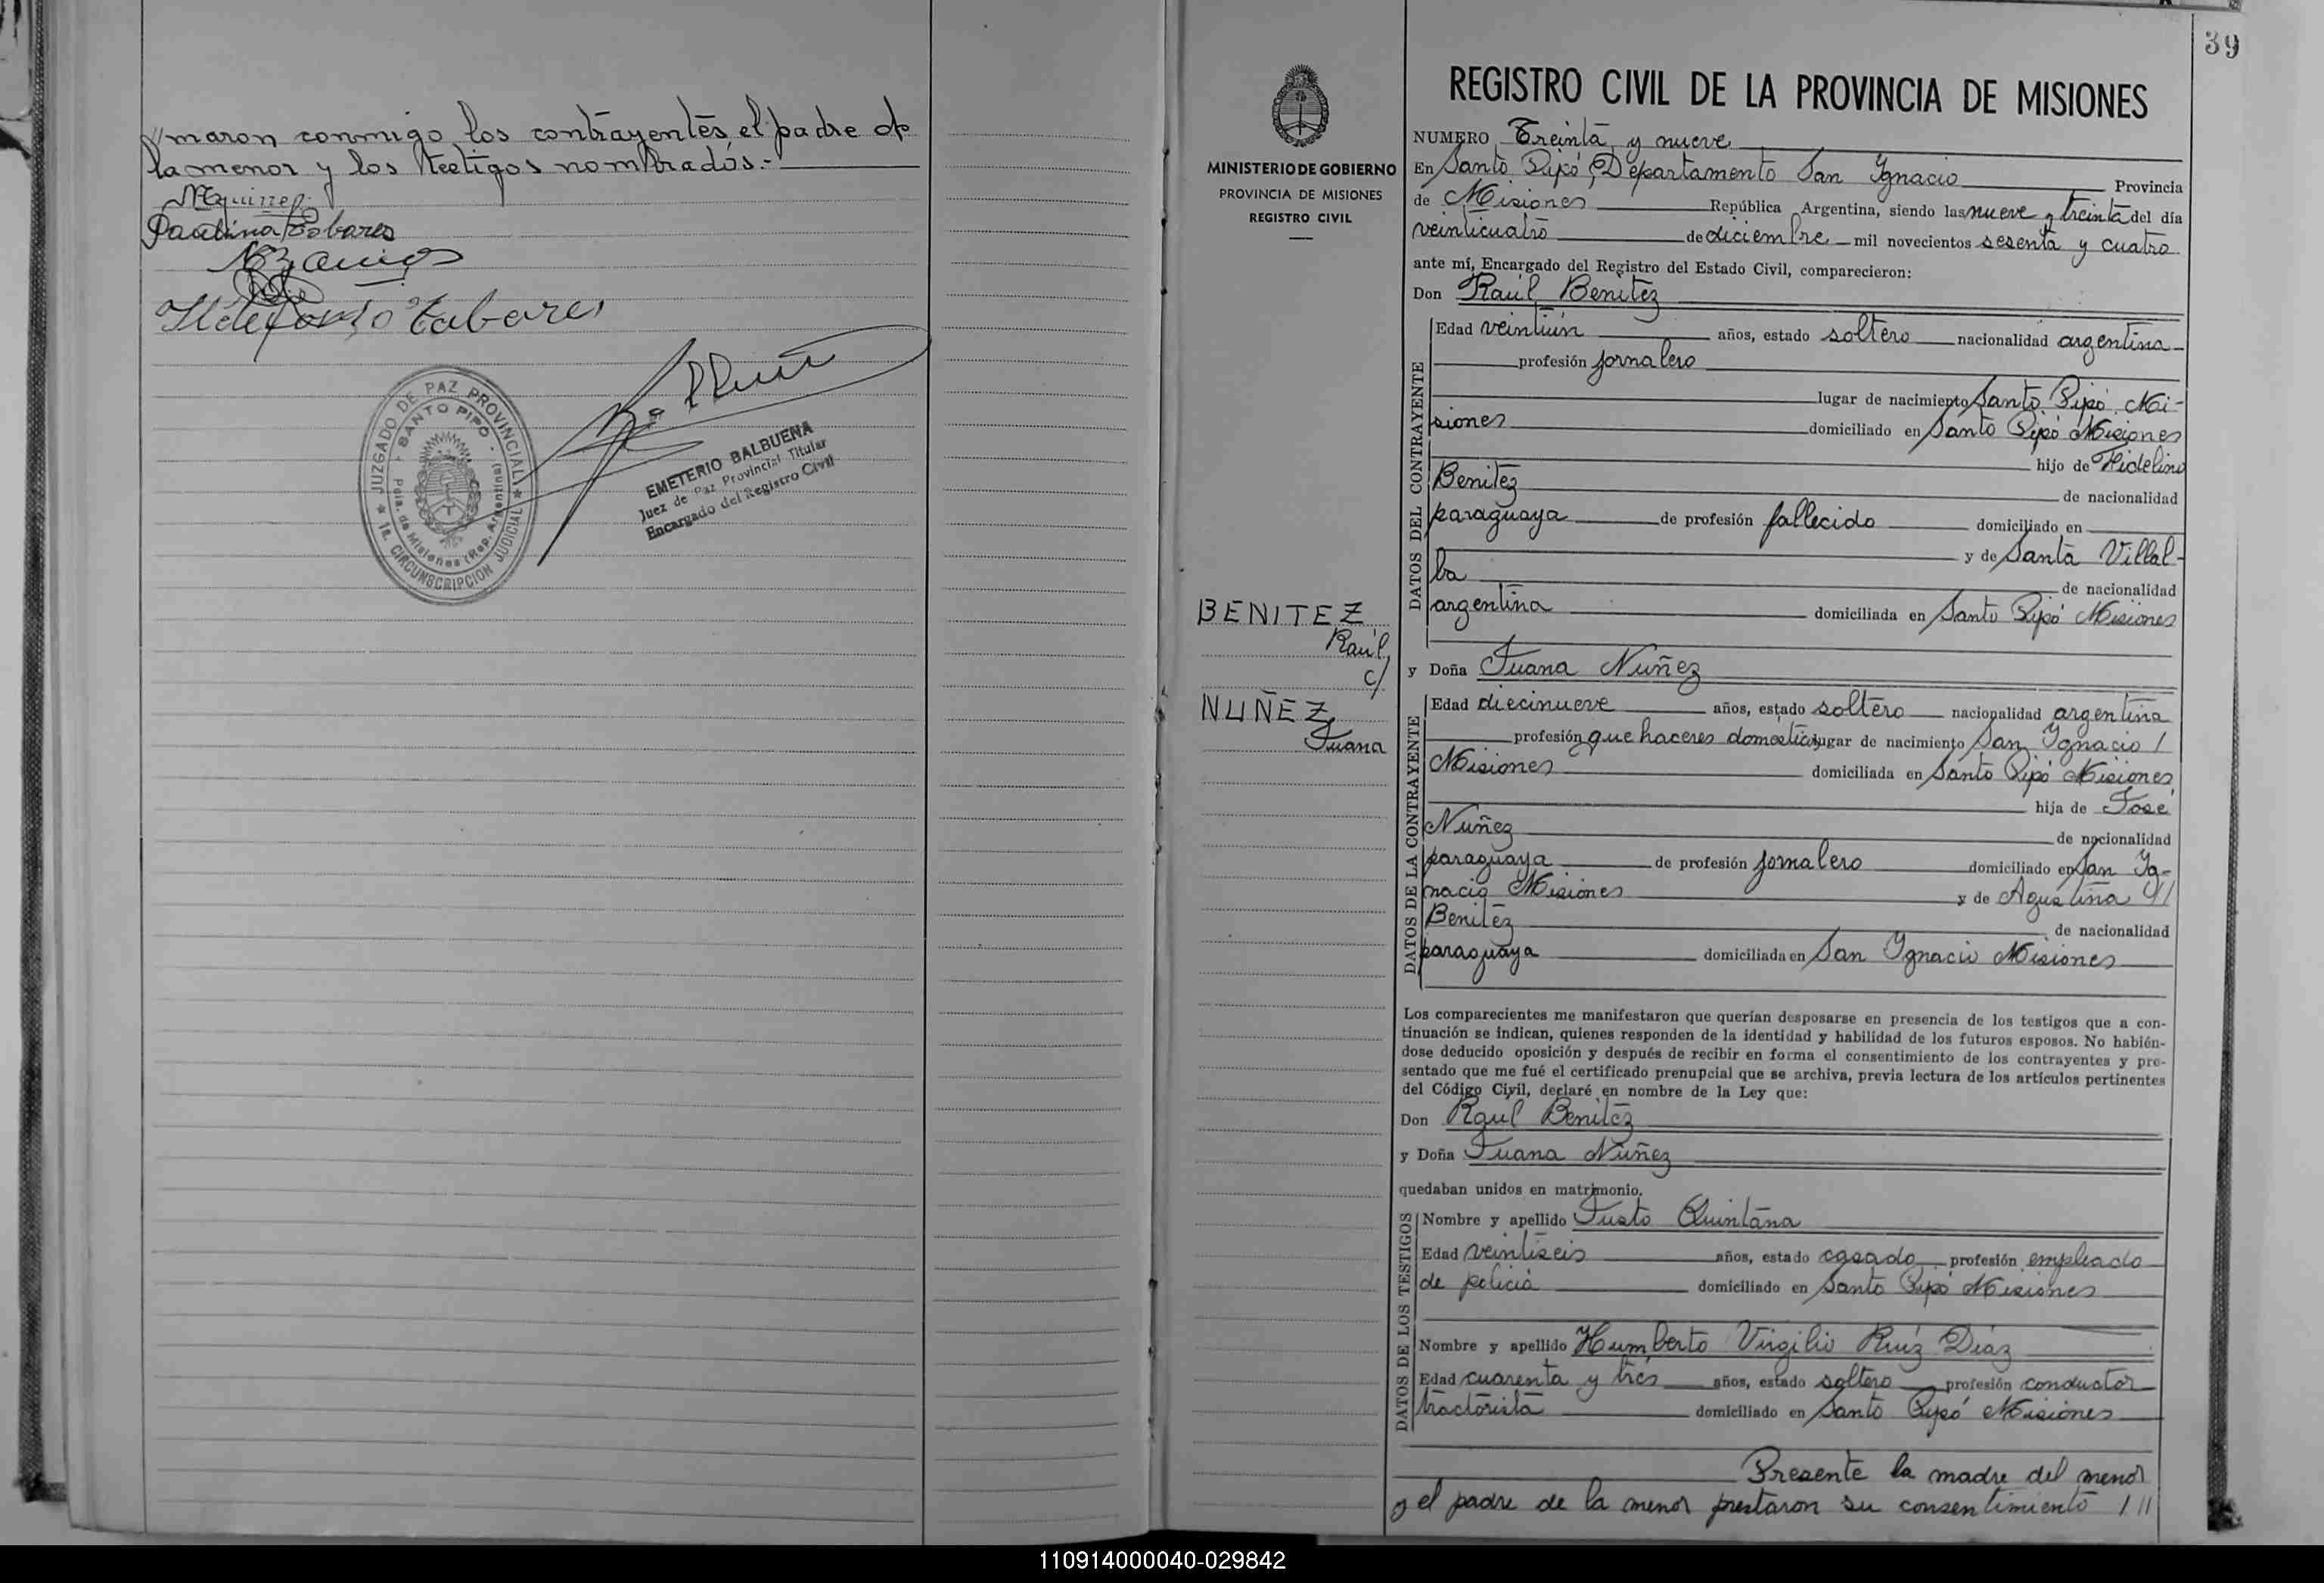 //maron conmigo los contrayentes el padre de
la menor y los testigos nombrados.-
Paulina Tabares
Ildefonso Tabares
JUZGADO DE PAZ PROVINCIAL
SANTO PIPÓ
Pcia. de Misiones (Rep. Argentina)
1a. CIRCUNSCRIPCION JUDICIAL
EMETERIO BALBUENA
Juez de Paz Provincial Titular
Encargado del Registro Civil
39
MINISTERIO DE GOBIERNO
PROVINCIA DE MISIONES
REGISTRO CIVIL
BENITEZ
Raúl
c/
NUÑEZ
Juana
REGISTRO CIVIL DE LA PROVINCIA DE MISIONES
NUMERO Treinta y nueve
En Santo Pipó, Departamento San Ignacio Provincia
de Misiones República Argentina, siendo las nueve y treinta del día
veinticuatro de diciembre mil novecientos sesenta y cuatro
ante mí, Encargado del Registro del Estado Civil, comparecieron:
Don Raúl Benitez
DATOS DEL CONTRAYENTE
Edad veintiún años, estado soltero nacionalidad argentina
profesión jornalero
lugar de nacimiento Santo Pipó Mi-
siones domiciliado en Santo Pipó Misiones
hijo de Fidelino
Benitez de nacionalidad
paraguaya de profesión fallecido domiciliado en
y de Santa Villal-
ba de nacionalidad
argentina domiciliada en Santo Pipó Misiones
y Doña Juana Nuñez
DATOS DE LA CONTRAYENTE
Edad diecinueve años, estado soltero nacionalidad argentina
profesión que haceres domesticos lugar de nacimiento San Ignacio /
Misiones domiciliada en Santo Pipó Misiones
hija de José
Nuñez de nacionalidad
paraguaya de profesión jornalero domiciliado en San Ig-
nacio Misiones y de Agustina //
Benitez de nacionalidad
paraguaya domiciliada en San Ignacio Misiones
Los comparecientes me manifestaron que querían desposarse en presencia de los testigos que a con-
tinuación se indican, quienes responden de la identidad y habilidad de los futuros esposos. No habién-
dose deducido oposición y después de recibir en forma el consentimiento de los contrayentes y pre-
sentado que me fué el certificado prenupcial que se archiva, previa lectura de los artículos pertinentes
del Código Civil, declaré en nombre de la Ley que:
Don Raul Benitez
y Doña Juana Nuñez
quedaban unidos en matrimonio.
DATOS DE LOS TESTIGOS
Nombre y apellido Justo Quintana
Edad veintiseis años, estado casado profesión empleado
de policia domiciliado en Santo Pipó Misiones
Nombre y apellido Humberto Virgilio Ruiz Diaz
Edad cuarenta y tres años, estado soltero profesión conductor
tractorista domiciliado en Santo Pipó Misiones
Presente la madre del menor
y el padre de la menor prestaron su consentimiento ///
110914000040-029842